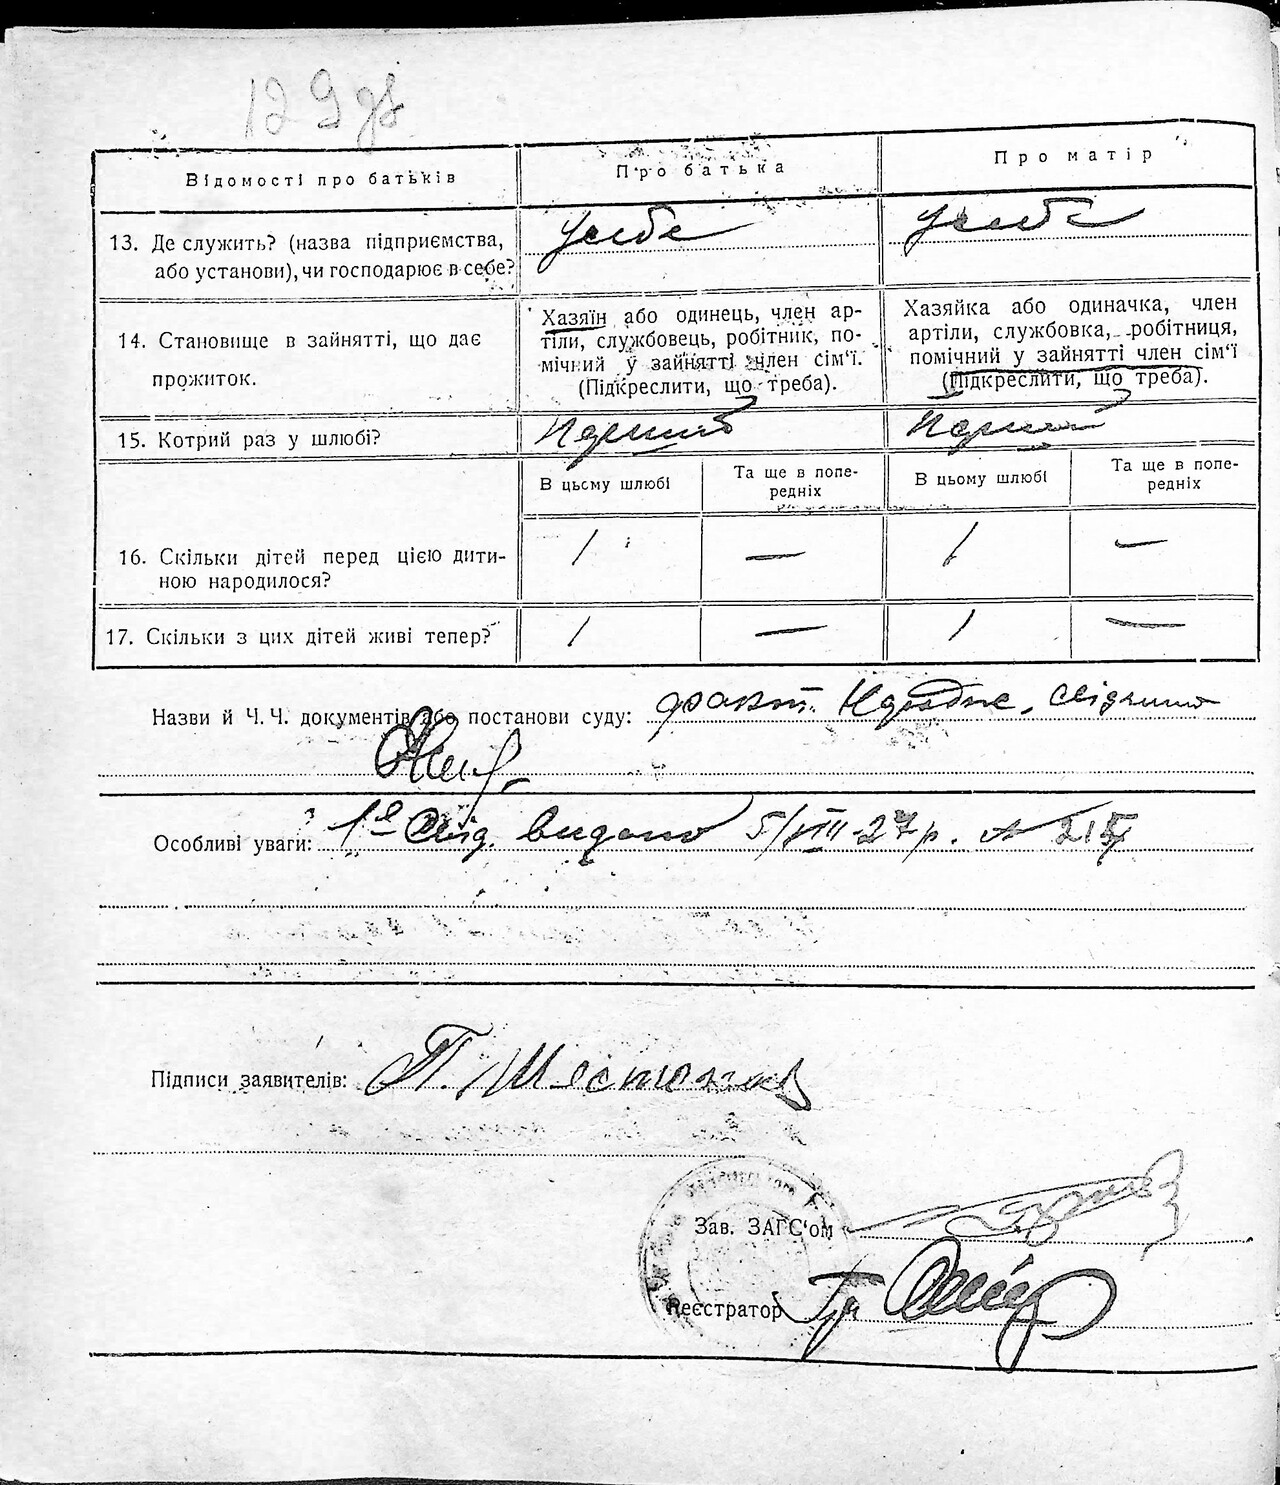 129
Відомості про батьків
Про батька
Про матір
13. Де служить? (назва підприємства, або установи), чи господарює в себе?
у себе
у себе
14. Становище в зайнятті, що дає прожиток.
Хазяїн або одинець, член ар-
тіли, службовець, робітник, по-
мічний у зайнятті член сім'ї.
(Підкреслити, що треба).
Хазяйка або одиначка, член
артіли, службовка, робітниця,
помічний у зайнятті член сім'ї
(Підкреслити, що треба).
15. Котрий раз у шлюбі?
Перший
Перший
В цьому шлюбі
Та ще в попе-
редніх
В цьому шлюбі
Та ще в попе-
редніх
16. Скільки дітей перед цією дити-
ною народилося?
1 — 1 —
17. Скільки з цих дітей живі тепер?
1 — 1 —
Назви й Ч. Ч. документів або постанови суду:
Особливі уваги: Свід. видано 5/VIII-27 р. №
Підписи заявителів: П. Шестопал
Зав. ЗАГС'ом
Реєстратор